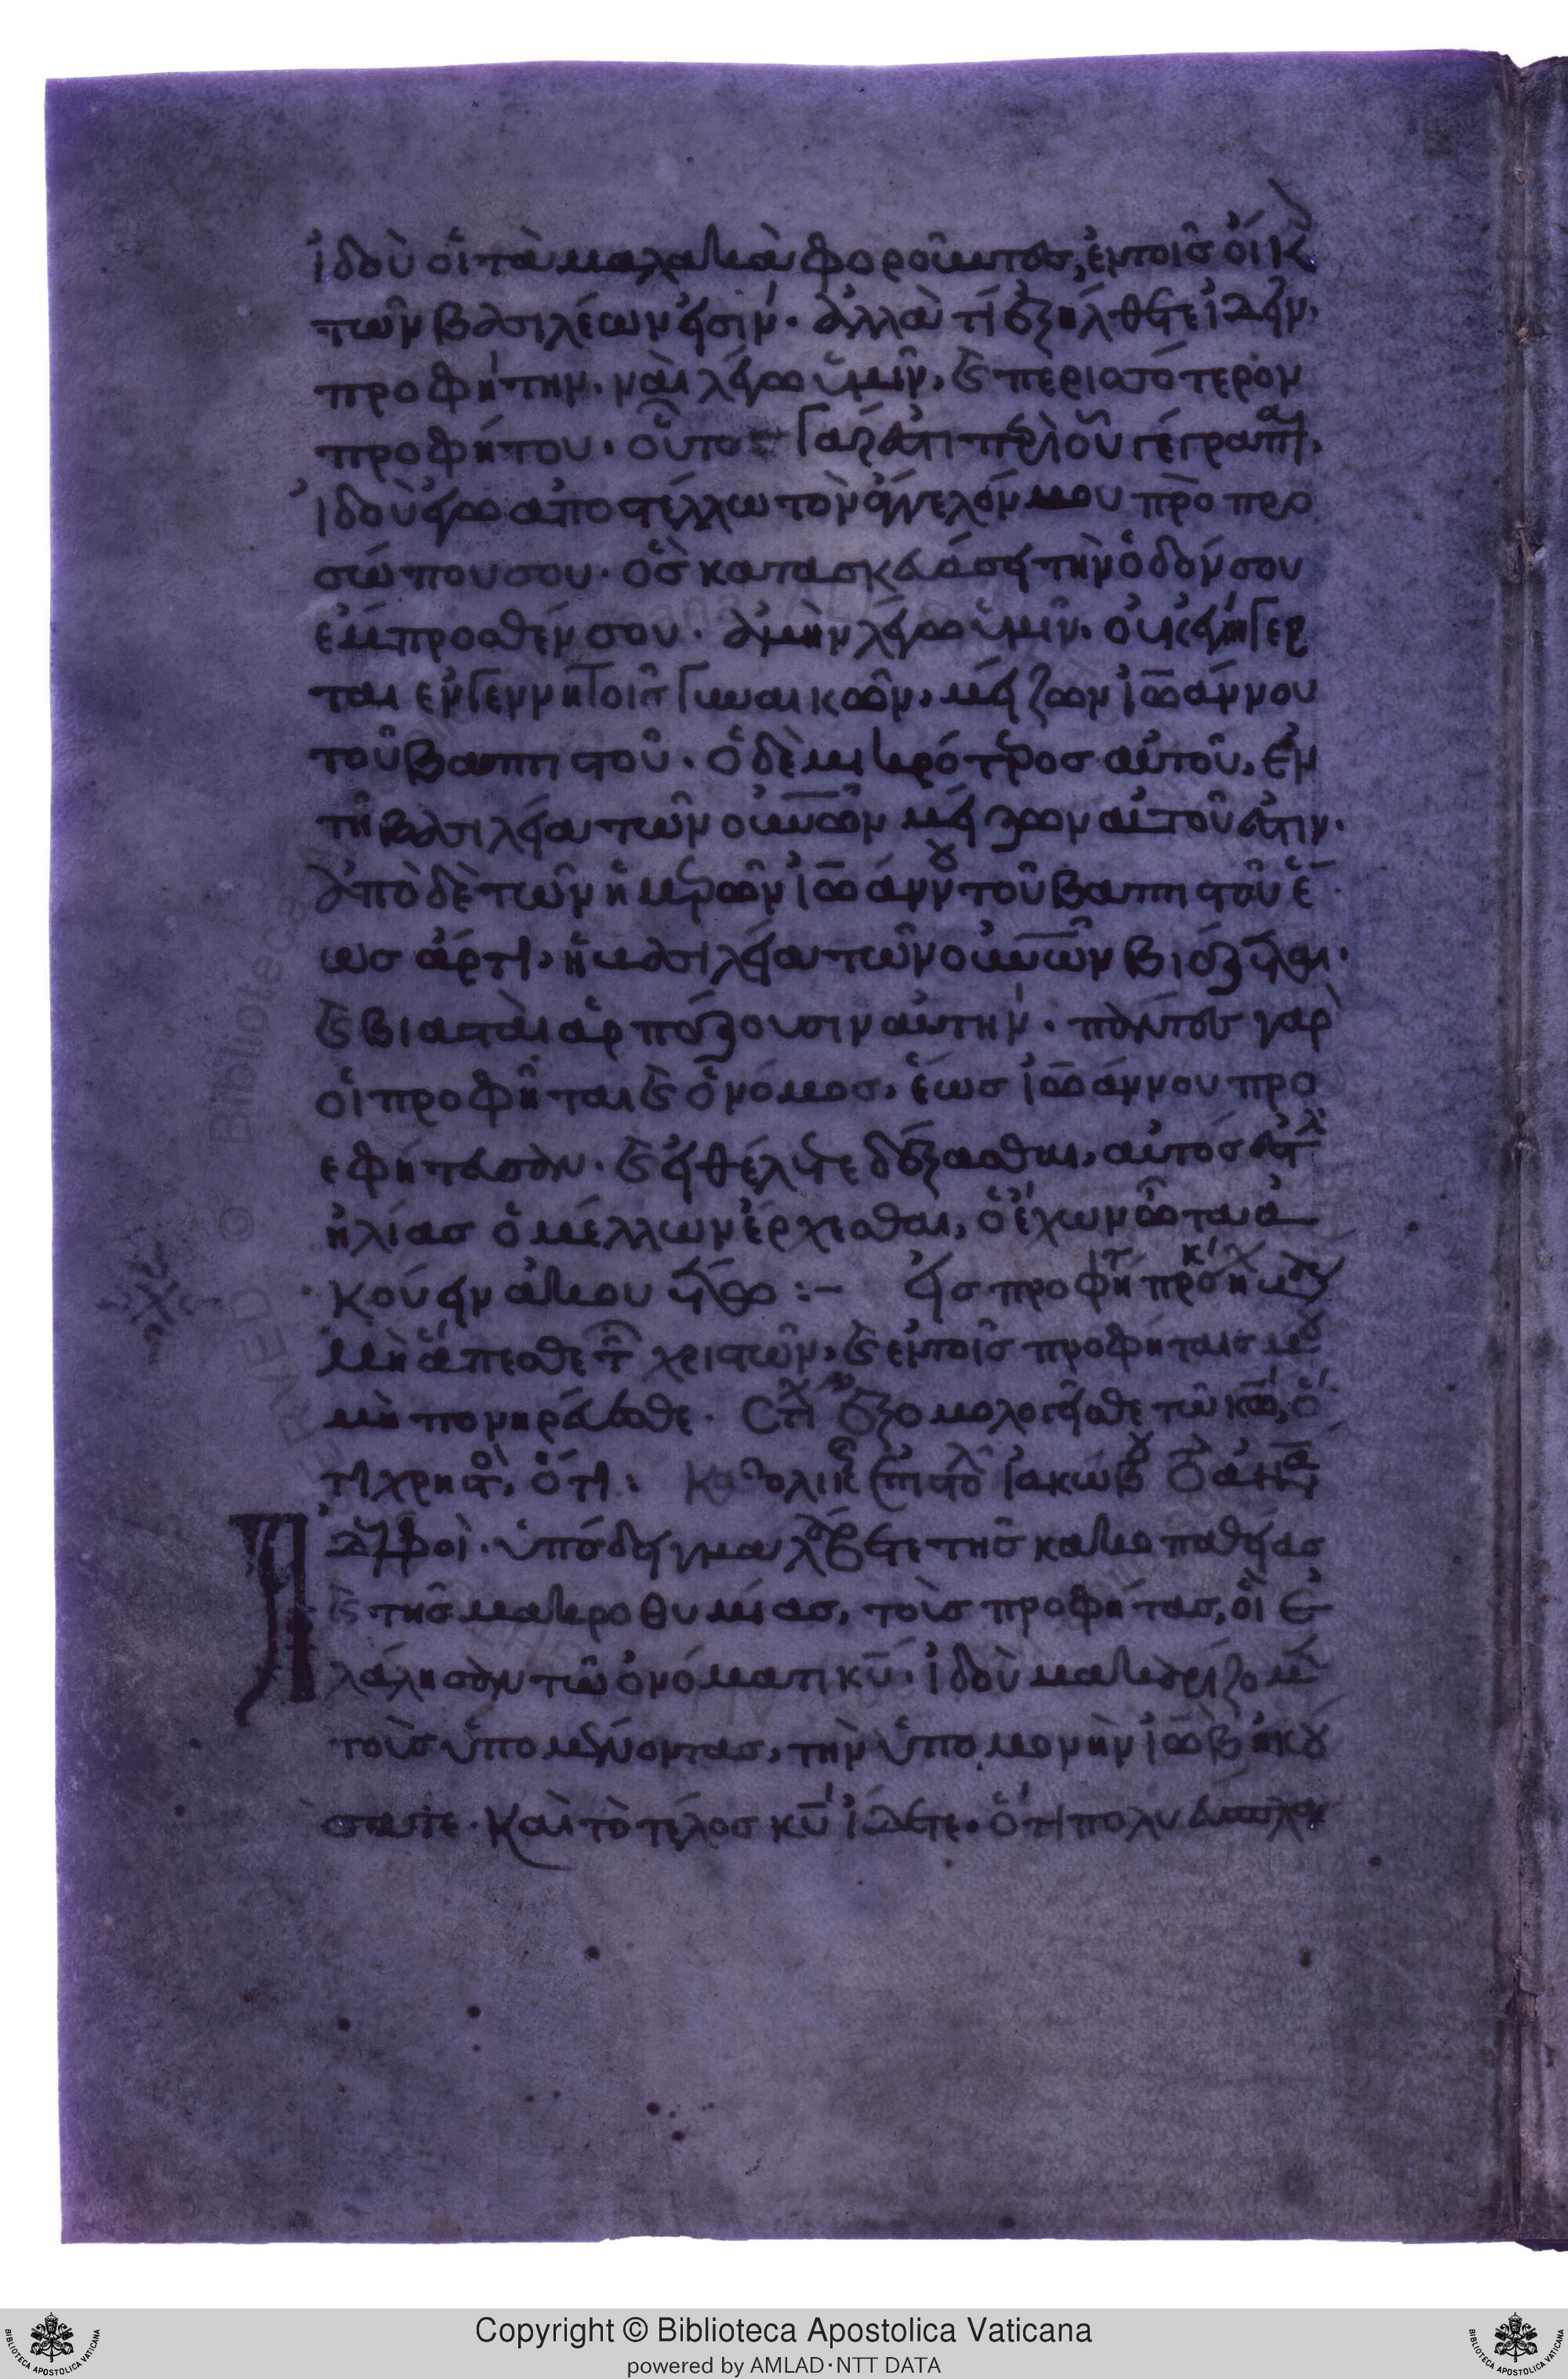 ἰδοὺ οἱ τὰ μαλακὰ φοροῦντες, ἐν τοῖς οἴκ
τῶν βασιλέων εἰσίν· ἀλλὰ τί ἐξήλθετε ἰδεῖν·
προφήτην· ναὶ λέγω ὑμῖν, καὶ περισσότερον
προφήτου· οὗτος γάρ ἐστι περὶ οὗ γέγραπται,
ἰδοὺ ἐγὼ ἀποστέλλω τὸν ἄγγελόν μου πρὸ προ
σώπου σου· ὃς κατασκευάσει τὴν ὁδόν σου
ἔμπροσθέν σου· ἀμὴν λέγω ὑμῖν· οὐκ ἐγήγερ
ται ἐν γεννητοῖς γυναικῶν, μείζων ἰωάννου
τοῦ βαπτιστοῦ· ὁ δὲ μικρότερος αὐτοῦ, ἐν
τῇ βασιλείᾳ τῶν οὐνῶν μείζων αὐτοῦ ἐστιν·
ἀπὸ δὲ τῶν ἡμερῶν ἰωάννου τοῦ βαπτιστοῦ ἕ
ως ἄρτι, ἡ βασιλεία τῶν οὐνῶν βιάζεται·
καὶ βιασταὶ ἁρπάζουσιν αὐτήν· πάντες γὰρ
οἱ προφῆται καὶ ὁ νόμος, ἕως ἰωάννου προ
εφήτευσαν· καὶ εἰ θέλετε δέξασθαι, αὐτός ἐστιν
ἠλίας ὁ μέλλων ἔρχεσθαι, ὁ ἔχων ὦτα ἀ
κούειν ἀκουέτω :– εἰς προφήτ προκ
μὴ ἅπτεσθε τῶν χριστῶν, καὶ ἐν τοῖς προφήταις μου
μὴ πονηρεύεσθε· Στι ἐξομολογεῖσθε τῷ κῶ, ὅ
τι χρηστὸ, ὅτι: καθολικῆς ἐπιστολ ἰακώβου
Ἀδελφοὶ· ὑπόδειγμα λάβετε τῆς κακοπαθείας
καὶ τῆς μακροθυμίας, τοὺς προφήτας, οἳ ἐ
λάλησαν τῷ ὀνόματι κυ· ἰδοὺ μακαρίζομεν
τοὺς ὑπομένοντας, τὴν ὑπομονὴν ἰὼβ ἠκού
σατε· καὶ τὸ τέλος κυ ἴδετε· ὅτι πολυεύσπλα
Copyright © Biblioteca Apostolica Vaticana
powered by AMLAD·NTT DATA